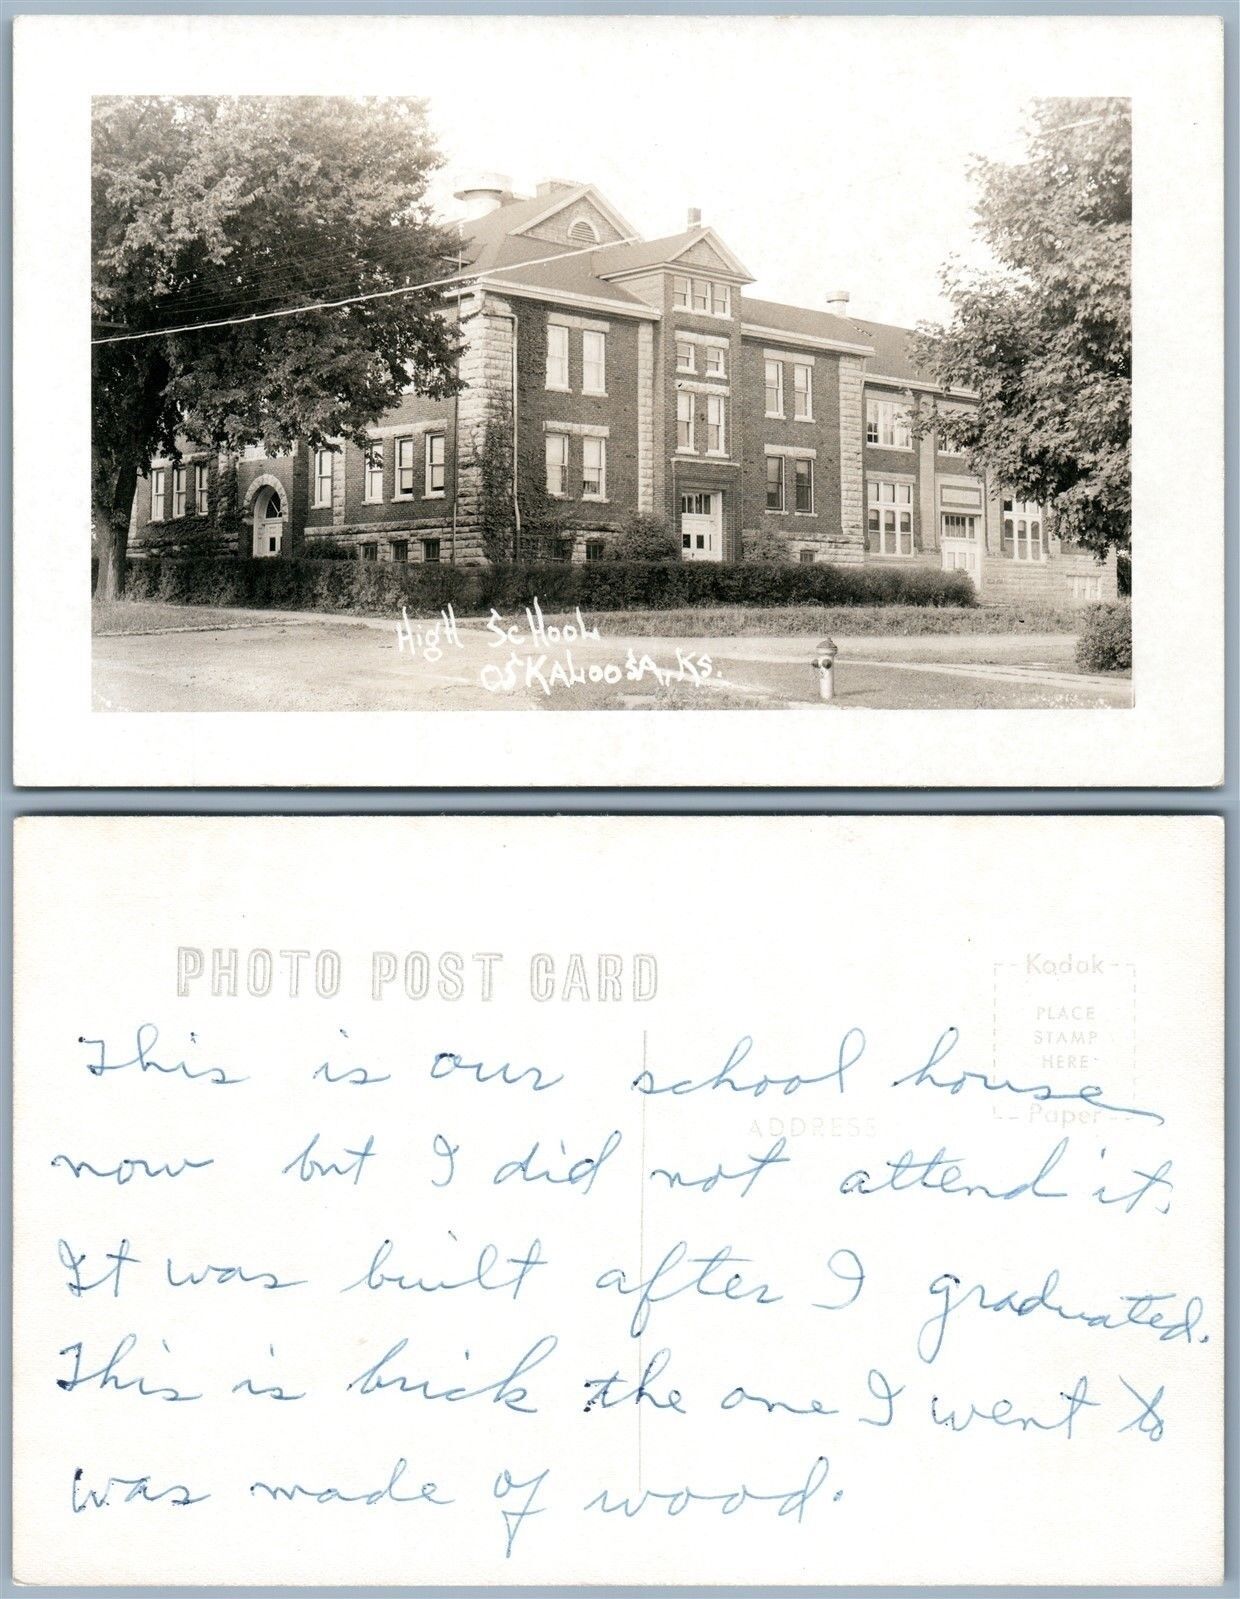 HigH ScHooL
OSKALOOSA, KS.
PHOTO POST CARD
Kodak
PLACE
STAMP
HERE
Paper
ADDRESS
This is our school house
now but I did not attend it.
It was built after I graduated.
This is brick the one I went to
was made of wood.